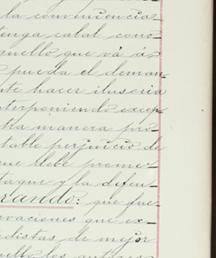 la conveniencia
tenga cabal cono-
quello que vá á
pueda el deman-
te hacer ilusoria
terponiendo excep-
tra manera pro-
table perjuicio de
que debe promo-
taque y la defen-
rando: que fue-
rvaciones que ex-
distas de mejor